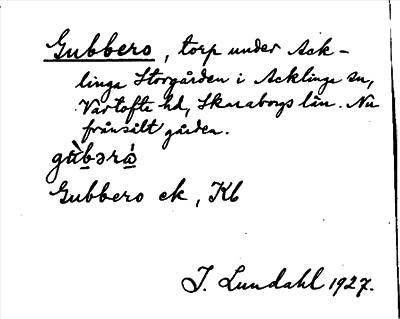 Gubbero, torp under Ack-
linga Storgården i Acklinga sn,
Vartofta hd, Skaraborgs län. Nu
frånsålt gården.
gù̀bərá̱
Gubbero ek, Kb
I. Lundahl 1927.